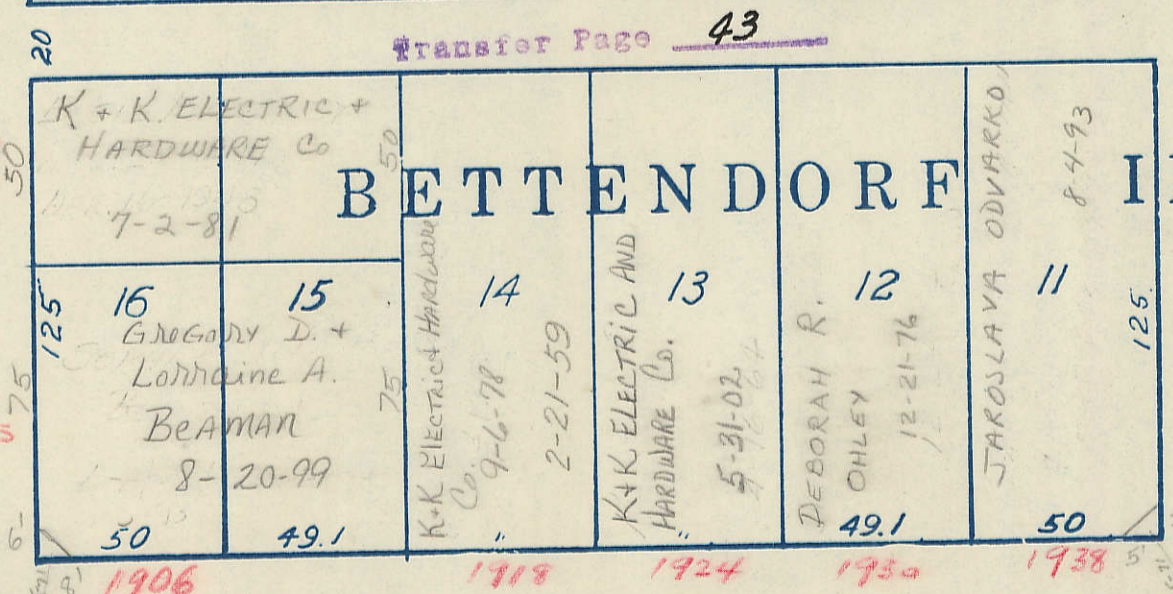 20
Transfer Page 43
K + K ELECTRIC +
HARDWARE Co
7-2-81
50
50
BETTENDORF
16
15
14
13
12
11
125
125
Gregory D. +
Lorraine A.
BEAMAN
8-20-99
75
75
K+K Electric & Hardware
Co.
9-6-78
2-21-59
K+K ELECTRIC AND
HARDWARE Co.
5-31-02
DEBORAH R.
OHLEY
12-21-76
JAROSLAVA ODVARKO
8-4-93
50
49.1
"
"
49.1
50
1906
1918
1924
1930
1938